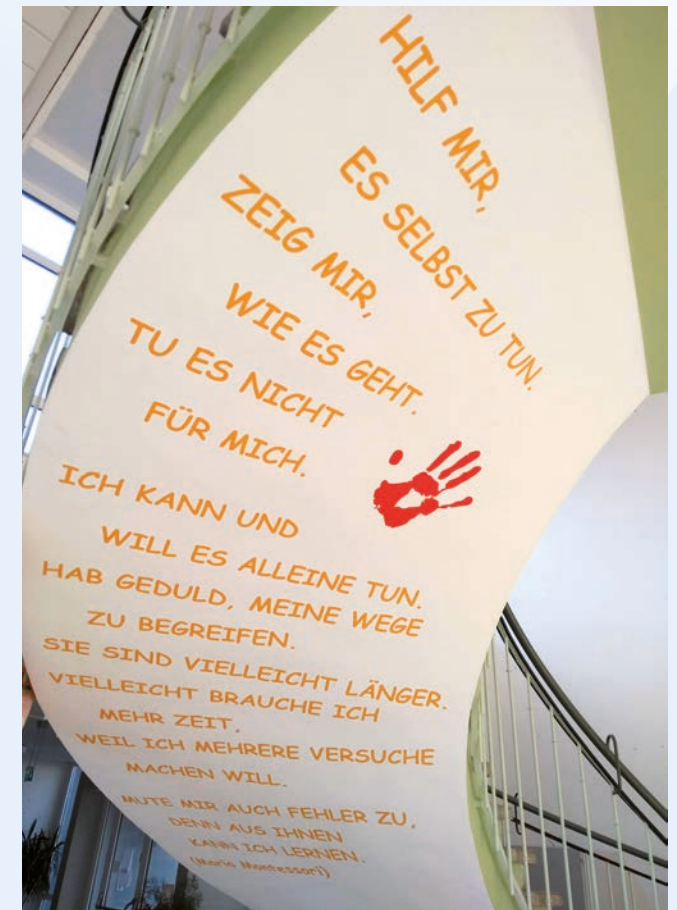 HILF MIR,
ES SELBST ZU TUN.
ZEIG MIR,
WIE ES GEHT.
TU ES NICHT
FÜR MICH.
ICH KANN UND
WILL ES ALLEINE TUN.
HAB GEDULD, MEINE WEGE
ZU BEGREIFEN.
SIE SIND VIELLEICHT LÄNGER.
VIELLEICHT BRAUCHE ICH
MEHR ZEIT,
WEIL ICH MEHRERE VERSUCHE
MACHEN WILL.
MUTE MIR AUCH FEHLER ZU,
DENN AUS IHNEN
KANN ICH LERNEN.
(Maria Montessori)